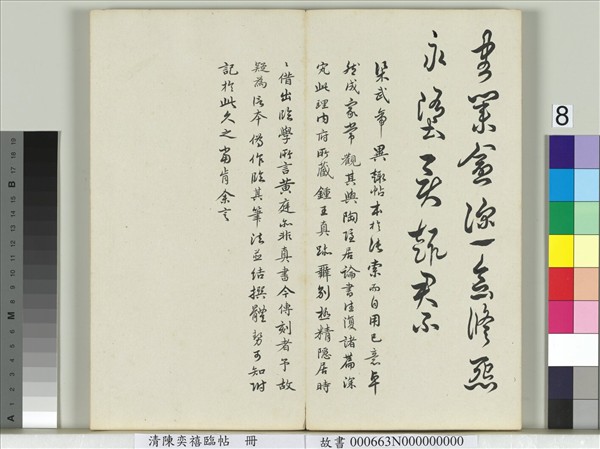 愛業愈深一念修怨
永墮異趣君不
梁武帝異趣帖本於法索而自用己意卓
然成家常觀其與陶隱居論書往復諸篇深
究此理內府所藏鍾王真跡辨別極精隱居時
〻借出臨學所言黃庭亦非真書今傳刻者予故
疑為本偽作臨其筆法並結撰體勢可知附
記於此久之當肯余言
清陳奕禧臨帖 冊
故書 000663N000000000
8
A 1 2 3 4 5 6 M 8 9 10 11 12 13 14 15 B 17 18 19